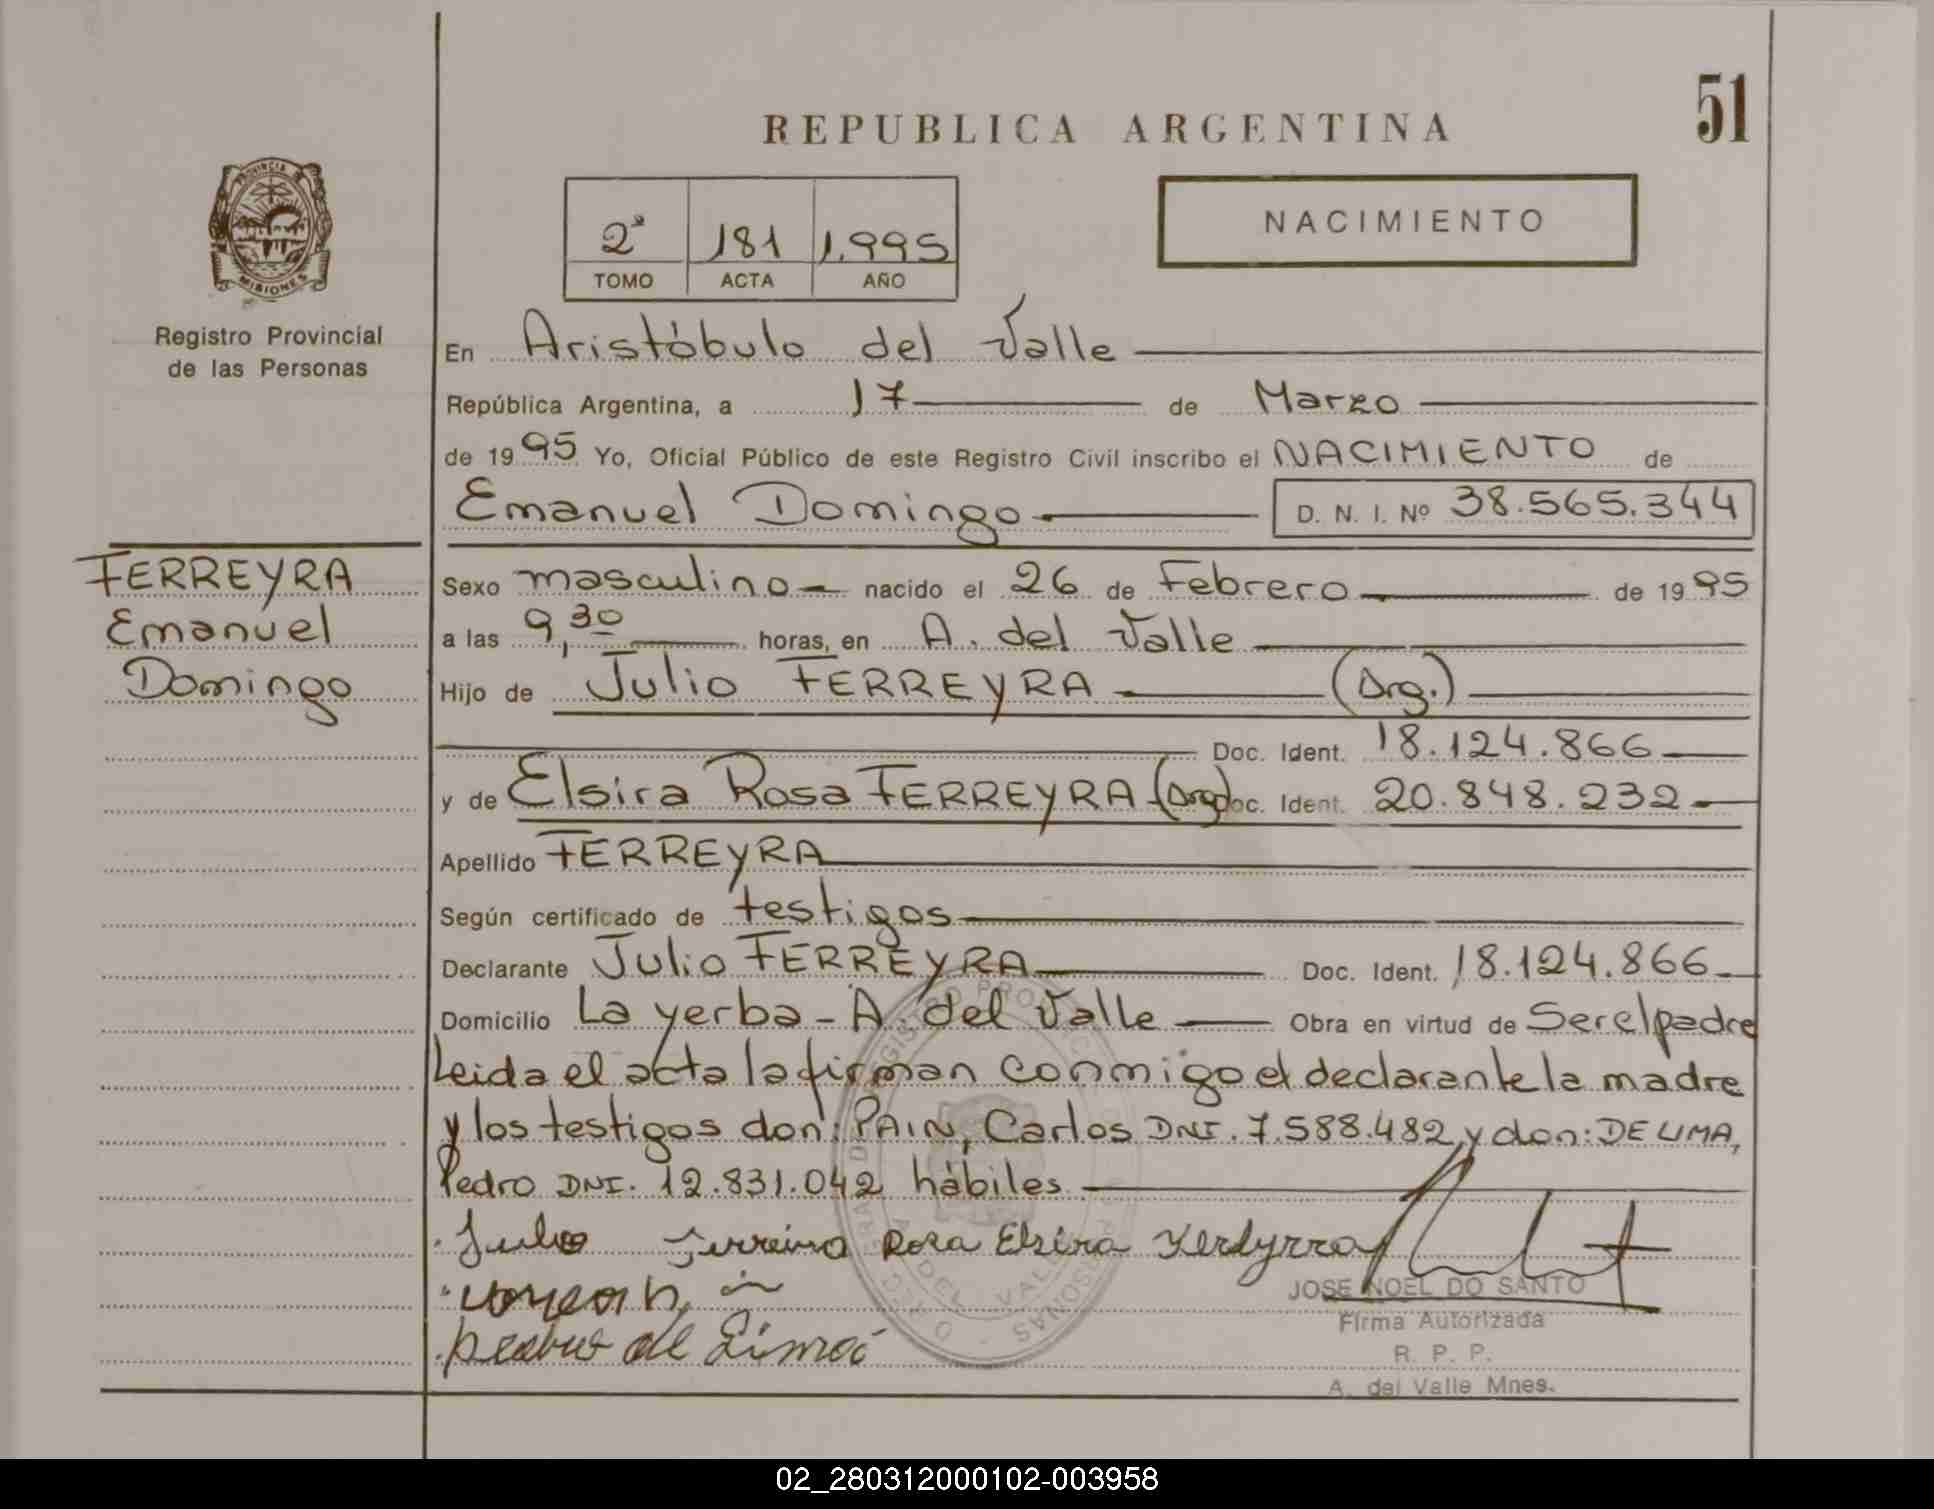 51
REPUBLICA ARGENTINA
PROVINCIA DE
MISIONES
Registro Provincial
de las Personas
2ª 181 1.995
TOMO ACTA AÑO
NACIMIENTO
En Aristóbulo del Valle
República Argentina, a 17 de Marzo
de 1995 Yo, Oficial Público de este Registro Civil inscribo el NACIMIENTO de
Emanuel Domingo D. N. I. Nº 38.565.344
FERREYRA
Emanuel
Domingo
Sexo masculino nacido el 26 de Febrero de 1995
a las 9,30 horas, en A. del Valle
Hijo de Julio FERREYRA (Arg.)
Doc. Ident. 18.124.866
y de Elsira Rosa FERREYRA (Arg) Doc. Ident. 20.848.232
Apellido FERREYRA
Según certificado de testigos
Declarante Julio FERREYRA Doc. Ident. 18.124.866
Domicilio La yerba - A. del Valle Obra en virtud de Ser el padre
Leida el acta la firman conmigo el declarante la madre
y los testigos don: PAIN, Carlos DNI. 7.588.482 y don: DE LIMA,
Pedro DNI. 12.831.042 hábiles
Julio Ferreira Rosa Elsira
pedro de Lima
JOSE NOEL DO SANTO
Firma Autorizada
R. P. P.
A. del Valle Mnes.
02_280312000102-003958